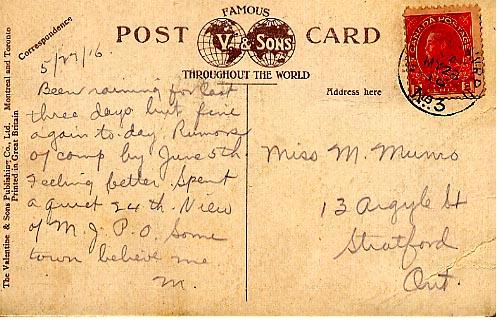 FAMOUS
POST V. & SONS CARD
THROUGHOUT THE WORLD
Correspondence
Address here
5/29/16.
Been raining for last
three days but fine
again to-day. Rumors
of camp by June 5th.
Feeling better. Spent
a quiet 24th. View
of M. J. P. O. Some
town believe me
M.
Miss M. Munro
13 Argyle St
Stratford
Ont.
CANADA POSTAGE
No. 3
The Valentine & Sons Publishing Co., Ltd., Montreal and Toronto
Printed in Great Britain